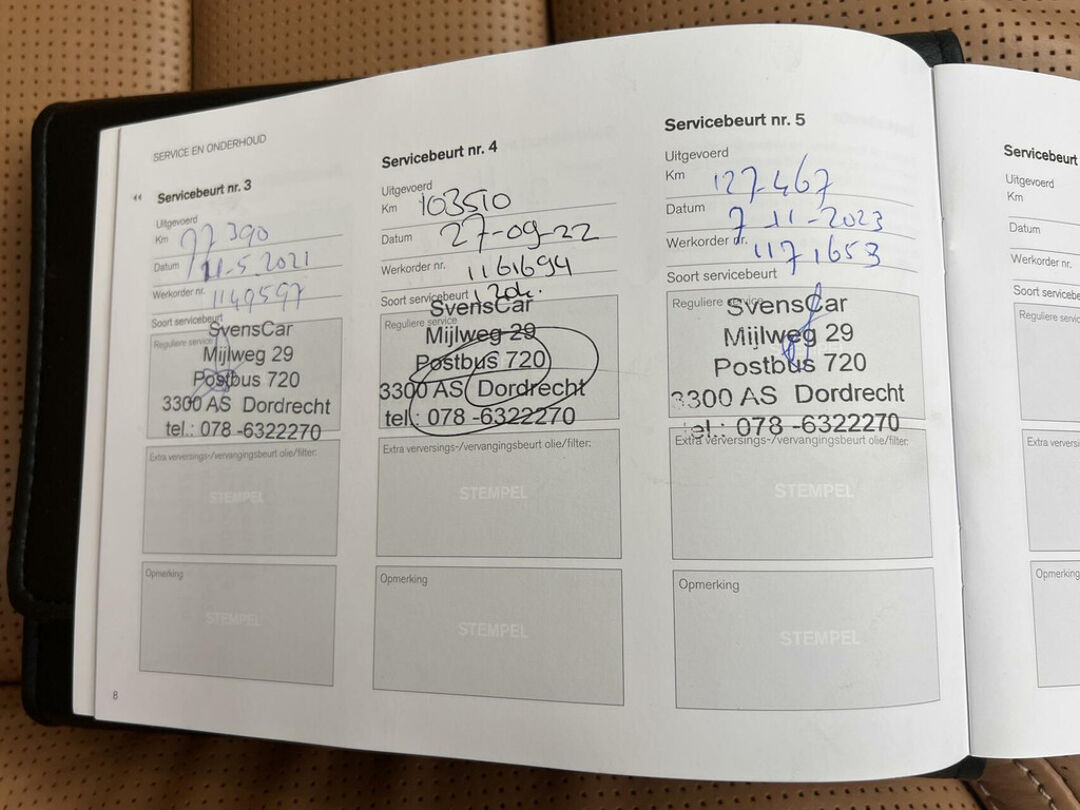 SERVICE EN ONDERHOUD
“ Servicebeurt nr. 3
Uitgevoerd
Km 77390
Datum 11-5-2021
Werkorder nr. 1149597
Soort servicebeurt
Reguliere service
SvensCar
Mijlweg 29
Postbus 720
3300 AS Dordrecht
tel.: 078 -6322270
Extra verversings-/vervangingsbeurt olie/filter:
STEMPEL
Opmerking
STEMPEL
8
Servicebeurt nr. 4
Uitgevoerd
Km 103510
Datum 27-09-22
Werkorder nr. 1161694
Soort servicebeurt
Reguliere service
SvensCar
Mijlweg 29
Postbus 720
3300 AS Dordrecht
tel.: 078 -6322270
Extra verversings-/vervangingsbeurt olie/filter:
STEMPEL
Opmerking
STEMPEL
Servicebeurt nr. 5
Uitgevoerd
Km 127.467
Datum 7-11-2023
Werkorder nr. 1171653
Soort servicebeurt
Reguliere service
SvensCar
Mijlweg 29
Postbus 720
3300 AS Dordrecht
tel.: 078 -6322270
Extra verversings-/vervangingsbeurt olie/filter:
STEMPEL
Opmerking
STEMPEL
Servicebeurt
Uitgevoerd
Km
Datum
Werkorder nr.
Soort servicebe
Reguliere servic
Extra verversi
Opmerking